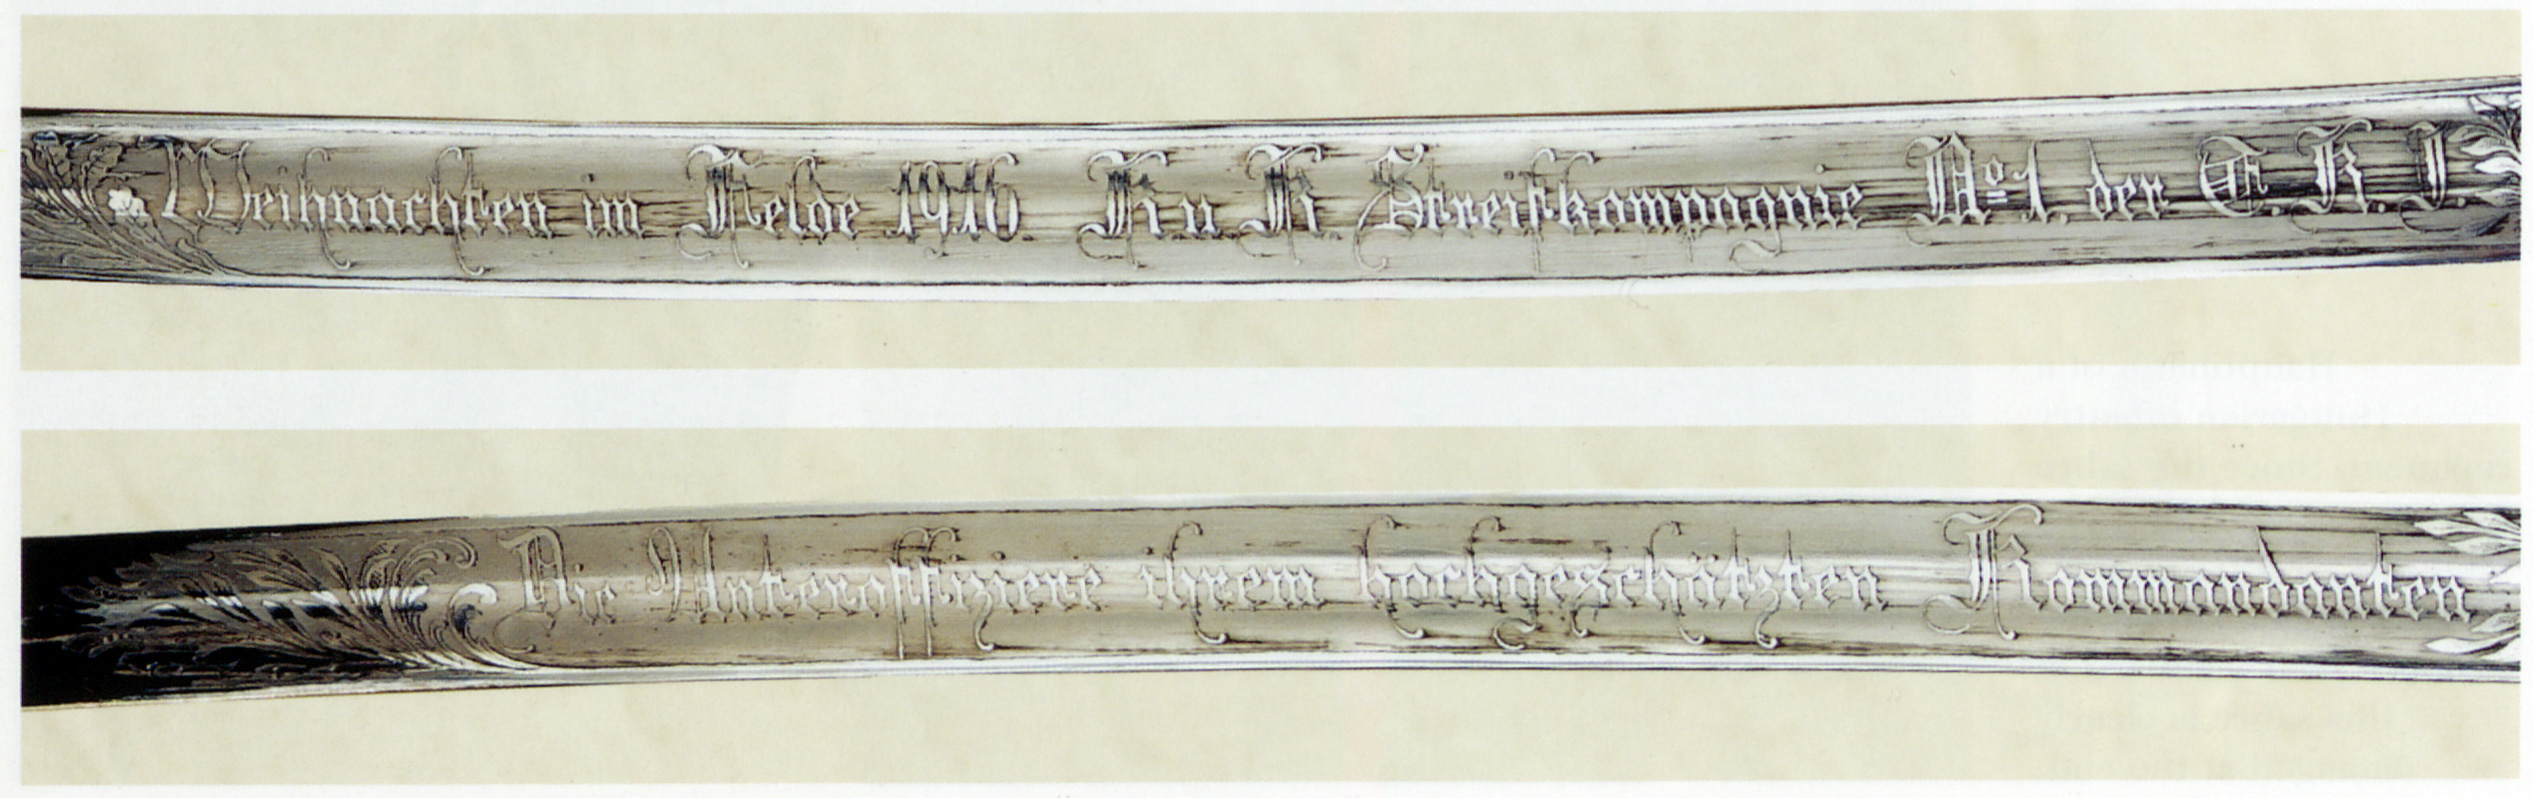 Weihnachten im Felde 1916. K. u. K. Streifkompagnie No. 1. der T. K. J.
Die Unteroffiziere ihrem hochgeschätzten Kommandanten